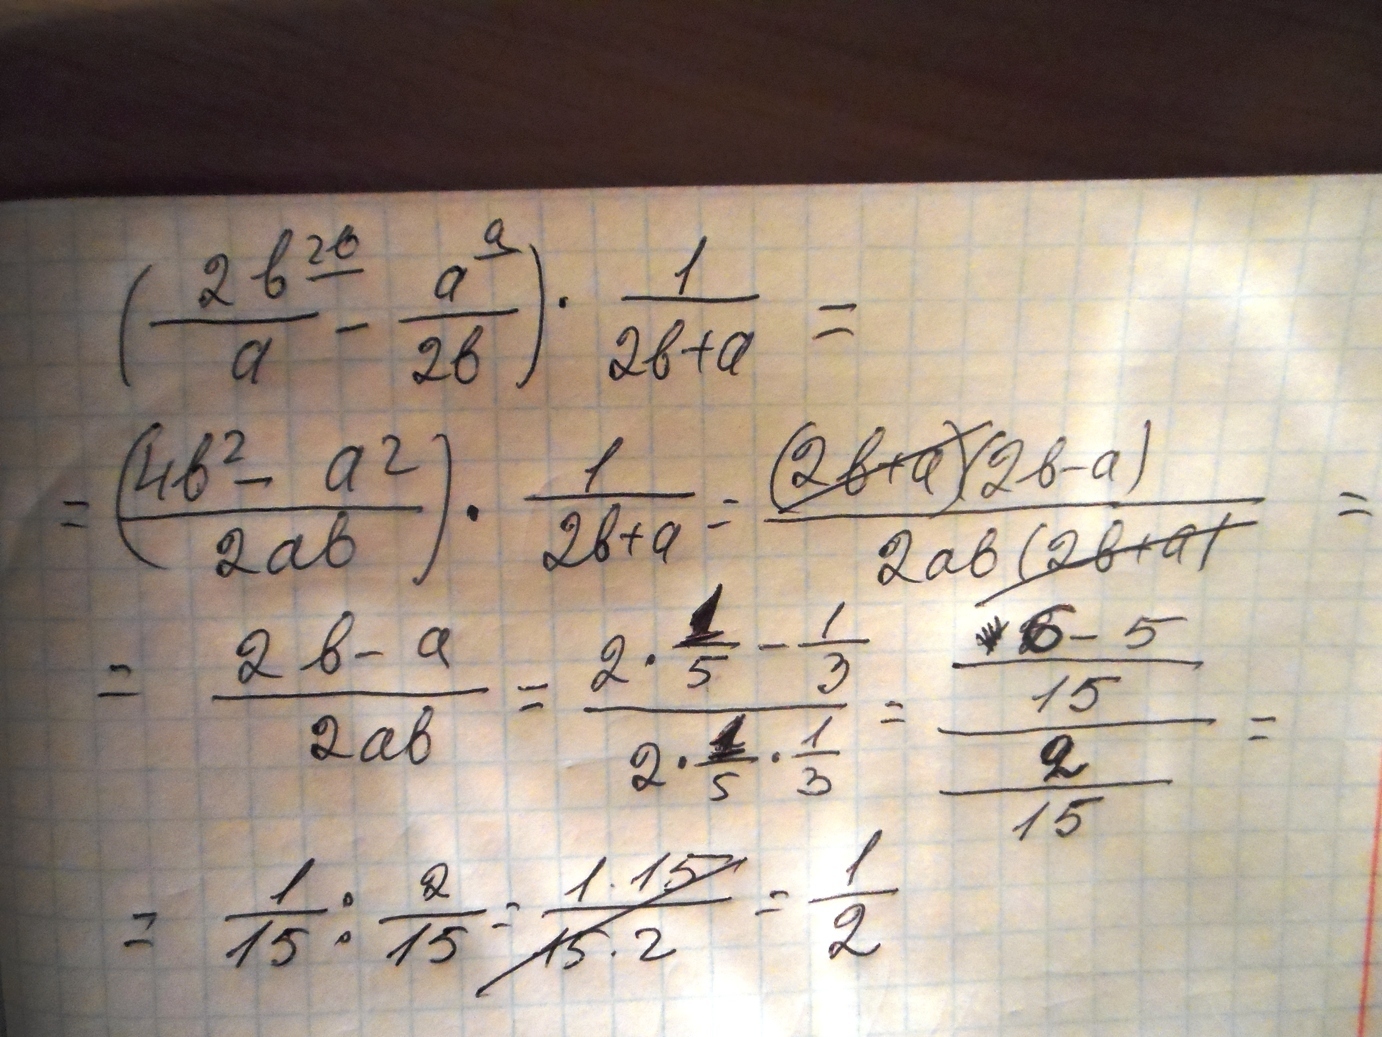 (2b^{2b}/a - a^{a}/2b) · 1/(2b+a) =
= ((4b² - a²)/2ab) · 1/(2b+a) = (2b+a)(2b-a)/2ab(2b+a) =
= (2b-a)/2ab = (2·1/5 - 1/3)/(2·1/5·1/3) = ((6-5)/15)/(2/15) =
= 1/15 : 2/15 = 1·15/15·2 = 1/2